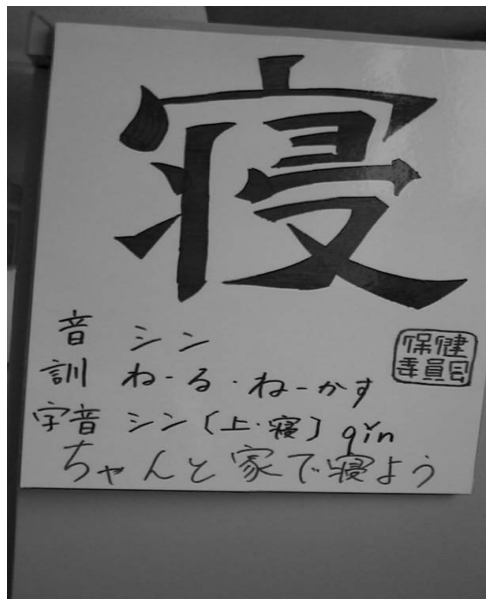 寝
音 シン
訓 ね-る・ね-かす
字音 シン〔上・寝〕qǐn
ちゃんと家で寝よう
保健
委員会